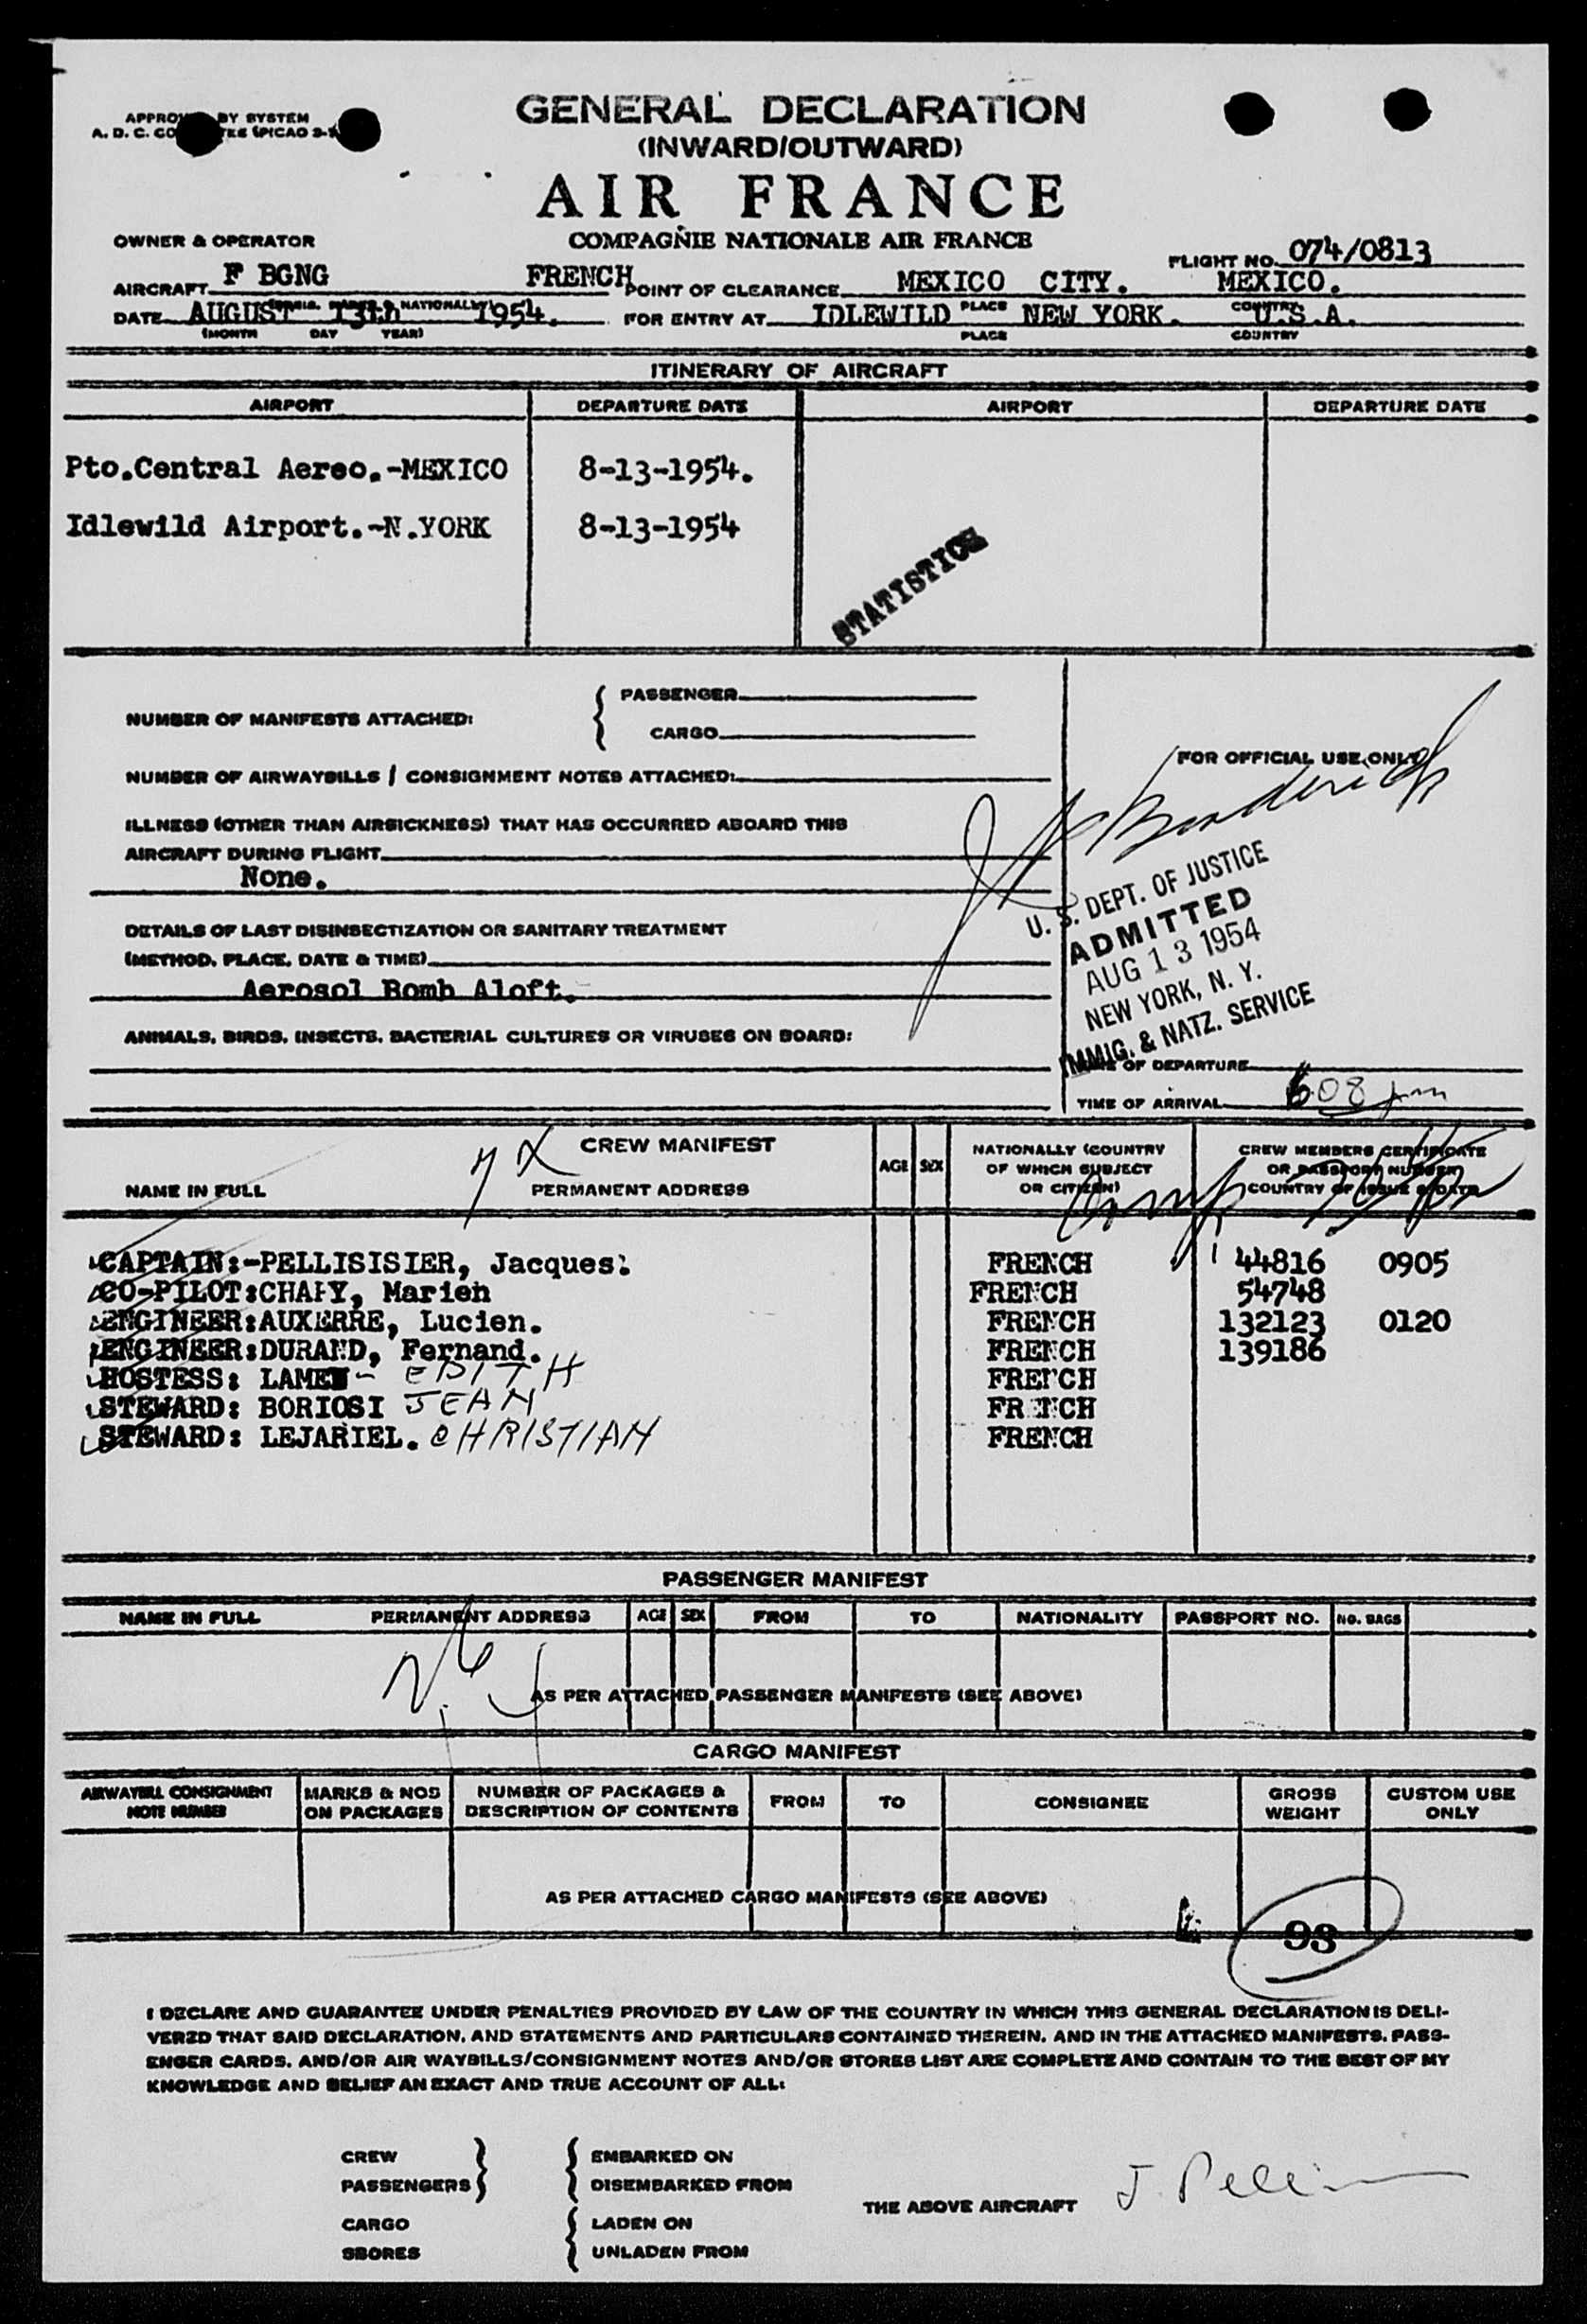 APPRO BY SYSTEM
A. D. C. CO TEE (PICAO 2-
GENERAL DECLARATION
(INWARD/OUTWARD)
AIR FRANCE
COMPAGNIE NATIONALE AIR FRANCE
OWNER & OPERATOR
FLIGHT NO. 074/0813
AIRCRAFT F BGNG FRENCH POINT OF CLEARANCE MEXICO CITY. MEXICO.
NATIONALITY) PLACE COUNTRY
DATE AUGUST 13th 1954. FOR ENTRY AT IDLEWILD NEW YORK. U.S.A.
(MONTH DAY YEAR) PLACE COUNTRY
ITINERARY OF AIRCRAFT
AIRPORT DEPARTURE DATE AIRPORT DEPARTURE DATE
Pto.Central Aereo.-MEXICO 8-13-1954.
Idlewild Airport.-N.YORK 8-13-1954
STATISTICS
NUMBER OF MANIFESTS ATTACHED: { PASSENGER
CARGO
NUMBER OF AIRWAYBILLS / CONSIGNMENT NOTES ATTACHED:
FOR OFFICIAL USE ONLY
ILLNESS (OTHER THAN AIRSICKNESS) THAT HAS OCCURRED ABOARD THIS
AIRCRAFT DURING FLIGHT
None.
DETAILS OF LAST DISINSECTIZATION OR SANITARY TREATMENT
(METHOD, PLACE, DATE & TIME)
Aerosol Bomb Aloft.
ANIMALS, BIRDS, INSECTS, BACTERIAL CULTURES OR VIRUSES ON BOARD:
U. S. DEPT. OF JUSTICE
ADMITTED
AUG 13 1954
NEW YORK, N. Y.
IMMIG. & NATZ. SERVICE
OF DEPARTURE
TIME OF ARRIVAL 608 pm
CREW MANIFEST
NAME IN FULL PERMANENT ADDRESS AGE SEX NATIONALLY (COUNTRY
OF WHICH SUBJECT
OR CITIZEN) CREW MEMBERS CERTIFICATE
OR PASSPORT NUMBER)
COUNTRY OF ISSUE & DATE
CAPTAIN:-PELLISISIER, Jacques. FRENCH 44816 0905
CO-PILOT:CHAFY, Marieh FRENCH 54748
ENGINEER:AUXERRE, Lucien. FRENCH 132123 0120
ENGINEER:DURAND, Fernand. FRENCH 139186
HOSTESS: LAMET- EDITH FRENCH
STEWARD: BORIOSI JEAN FRENCH
STEWARD: LEJARIEL. CHRISTIAN FRENCH
PASSENGER MANIFEST
NAME IN FULL PERMANENT ADDRESS AGE SEX FROM TO NATIONALITY PASSPORT NO. NO. BAGS
AS PER ATTACHED PASSENGER MANIFESTS (SEE ABOVE)
CARGO MANIFEST
AIRWAYBILL CONSIGNMENT
NOTE NUMBER MARKS & NOS
ON PACKAGES NUMBER OF PACKAGES &
DESCRIPTION OF CONTENTS FROM TO CONSIGNEE GROSS
WEIGHT CUSTOM USE
ONLY
AS PER ATTACHED CARGO MANIFESTS (SEE ABOVE)
93
I DECLARE AND GUARANTEE UNDER PENALTIES PROVIDED BY LAW OF THE COUNTRY IN WHICH THIS GENERAL DECLARATION IS DELI-
VERED THAT SAID DECLARATION, AND STATEMENTS AND PARTICULARS CONTAINED THEREIN, AND IN THE ATTACHED MANIFESTS, PASS-
ENGER CARDS, AND/OR AIR WAYBILLS/CONSIGNMENT NOTES AND/OR STORES LIST ARE COMPLETE AND CONTAIN TO THE BEST OF MY
KNOWLEDGE AND BELIEF AN EXACT AND TRUE ACCOUNT OF ALL:
CREW } { EMBARKED ON
PASSENGERS DISEMBARKED FROM
THE ABOVE AIRCRAFT
CARGO { LADEN ON
SBORES UNLADEN FROM